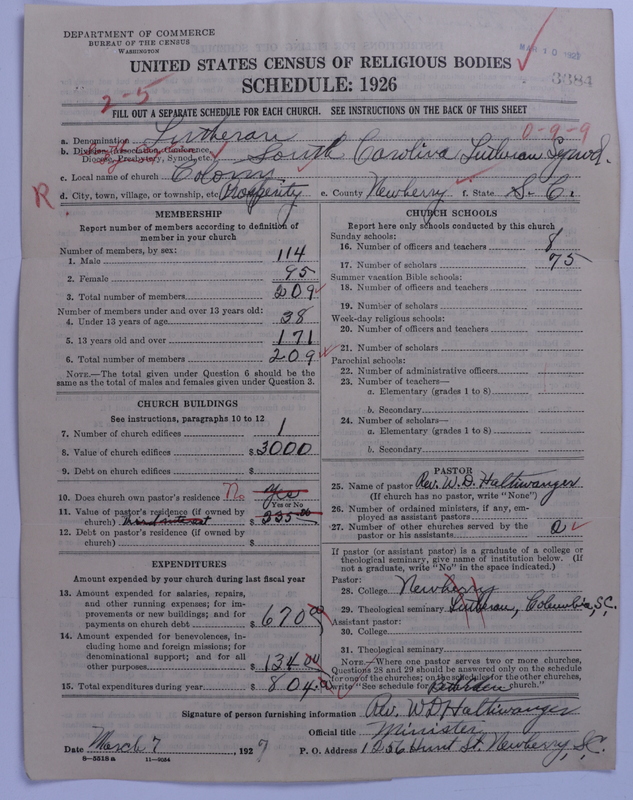 DEPARTMENT OF COMMERCE
BUREAU OF THE CENSUS
WASHINGTON
UNITED STATES CENSUS OF RELIGIOUS BODIES
SCHEDULE: 1926
3384
2-5
FILL OUT A SEPARATE SCHEDULE FOR EACH CHURCH. SEE INSTRUCTIONS ON THE BACK OF THIS SHEET
0-9-9
a. Denomination Lutheran
b. Division, Association, Conference,
Diocese, Presbytery, Synod, etc. South Carolina Lutheran Synod.
c. Local name of church Colony
R
d. City, town, village, or township, etc. Prosperity e. County Newberry f. State S. C.
MEMBERSHIP
Report number of members according to definition of
member in your church
Number of members, by sex:
1. Male 114
2. Female 95
3. Total number of members 209
Number of members under and over 13 years old:
4. Under 13 years of age 38
5. 13 years old and over 171
6. Total number of members 209
NOTE.—The total given under Question 6 should be the
same as the total of males and females given under Question 3.
CHURCH BUILDINGS
See instructions, paragraphs 10 to 12
7. Number of church edifices 1
8. Value of church edifices $3000
9. Debt on church edifices $
10. Does church own pastor's residence No Yes
Yes or No
11. Value of pastor's residence (if owned by
church) third interest $ 335.00
12. Debt on pastor's residence (if owned by
church) $
EXPENDITURES
Amount expended by your church during last fiscal year
13. Amount expended for salaries, repairs,
and other running expenses; for im-
provements or new buildings; and for
payments on church debt $ 670.00
14. Amount expended for benevolences, in-
cluding home and foreign missions; for
denominational support; and for all
other purposes $ 134.00
15. Total expenditures during year $ 804.00
CHURCH SCHOOLS
Report here only schools conducted by this church
Sunday schools:
16. Number of officers and teachers 8
17. Number of scholars 75
Summer vacation Bible schools:
18. Number of officers and teachers
19. Number of scholars
Week-day religious schools:
20. Number of officers and teachers
21. Number of scholars
Parochial schools:
22. Number of administrative officers
23. Number of teachers—
a. Elementary (grades 1 to 8)
b. Secondary
24. Number of scholars—
a. Elementary (grades 1 to 8)
b. Secondary
PASTOR
25. Name of pastor Rev. W. D. Haltiwanger
(If church has no pastor, write "None")
26. Number of ordained ministers, if any, em-
ployed as assistant pastors
27. Number of other churches served by the
pastor or his assistants 2
If pastor (or assistant pastor) is a graduate of a college or
theological seminary, give name of institution below. (If
not a graduate, write "No" in the space indicated.)
Pastor:
28. College Newberry
29. Theological seminary Lutheran, Columbia, S.C.
Assistant pastor:
30. College
31. Theological seminary
NOTE.—Where one pastor serves two or more churches,
Questions 28 and 29 should be answered only on the schedule
for one of the churches; on the schedules for the other churches,
write "See schedule for Bethden church."
Signature of person furnishing information Rev. W D Haltiwanger
Official title Minister
Date March 7, 1927 P. O. Address 1256 Hunt St. Newberry, S.C.
8-5518a 11-9084